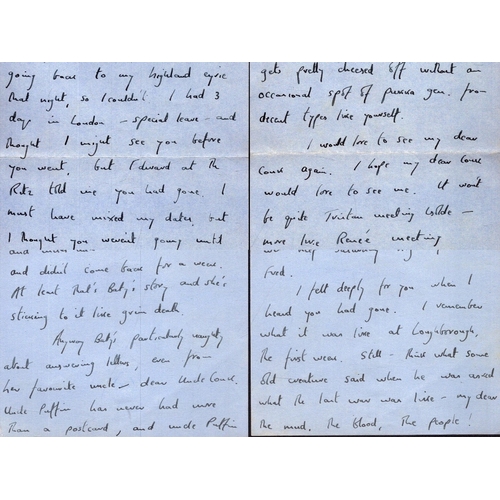 going back to my highland eyrie
that night, so I couldn't. I had 3
days in London – special leave – and
thought I might see you before
you went, but Edward at the
Ritz told me you had gone. I
must have mixed my dates, but
I thought you weren't going until
and
and didn't come back for a week.
At least that's Baty's story and she's
sticking to it like grim death.
Anyway Baty's particularly naughty
about answering letters, even from
her favourite uncle – dear Uncle Couse.
Uncle Puffin has never had more
than a postcard, and uncle Puffin
gets pretty cheesed off without an
occasional spot of pukka gen. from
decent types like yourself.
I would love to see my dear
Couse again. I hope my dear Couse
would love to see me. It won't
be quite Tristan meeting Isolde –
more like Renée meeting
Fred.
I felt deeply for you when I
heard you had gone. I remember
what it was like at Loughborough,
the first week. Still – think what some
old creature said when he was asked
what the last war was like – my dear
the mud, the blood, the people!